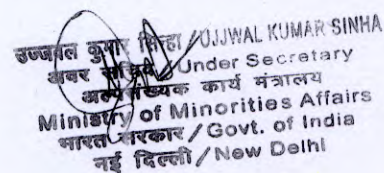 उज्जवल कुमार सिन्हा /UJJWAL KUMAR SINHA
अवर सचिव/Under Secretary
अल्पसंख्यक कार्य मंत्रालय
Ministry of Minorities Affairs
भारत सरकार/Govt. of India
नई दिल्ली/New Delhi